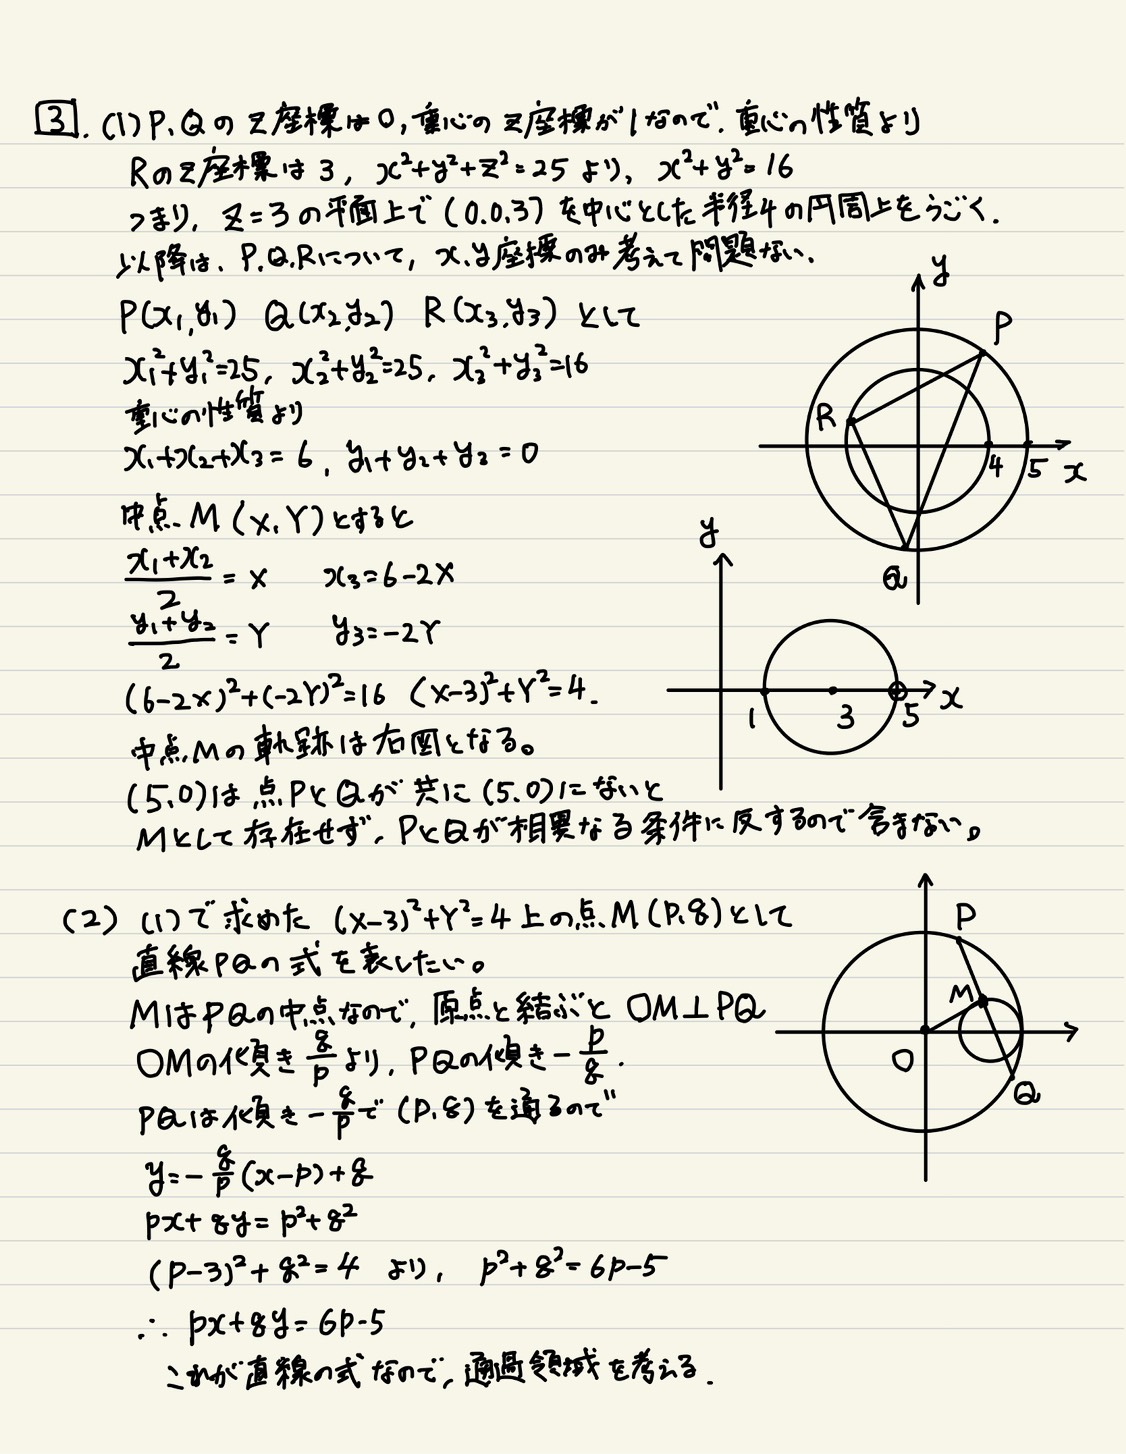 3. (1) P,Qのz座標は0,重心のz座標が1なので,重心の性質より
Rのz座標は3, x²+y²+z²=25より, x²+y²=16
つまり, z=3の平面上で(0,0,3)を中心とした半径4の円周上をうごく.
以降は, P,Q,Rについて, x,y座標のみ考えて問題ない.
P(x₁,y₁) Q(x₂,y₂) R(x₃,y₃) として
x₁²+y₁²=25, x₂²+y₂²=25, x₃²+y₃²=16
重心の性質より
x₁+x₂+x₃=6, y₁+y₂+y₃=0
中点M(X,Y)とすると
(x₁+x₂)/2=X x₃=6-2X
(y₁+y₂)/2=Y y₃=-2Y
(6-2X)²+(-2Y)²=16 (X-3)²+Y²=4.
中点Mの軌跡は右図となる。
(5,0)は点PとQが共に(5,0)にないと
Mとして存在せず, PとQが相異なる条件に反するので含まない。
y
P
R
4 5 x
Q
y
1 3 5 x
(2) (1)で求めた (X-3)²+Y²=4上の点M(p,q)として
直線PQの式を表したい。
MはPQの中点なので, 原点と結ぶと OM⊥PQ
OMの傾き q/p より, PQの傾き -p/q.
PQは傾き -q/p で (p,q)を通るので
y=-q/p(x-p)+q
px+qy=p²+q²
(p-3)²+q²=4 より, p²+q²=6p-5
∴ px+qy=6p-5
これが直線の式なので, 通過領域を考える.
P
M
O
Q